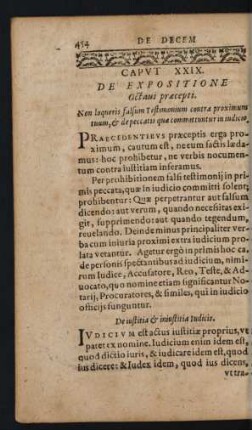 454 DE DECEM
CAPVT XXIX.
DE EXPOSITIONE
Octaui præcepti.
Non loqueris falsum Testimonium contra proximum
tuum, & de peccatis quæ committuntur in iudicio.
PRAECEDENTIBVS præceptis erga pro
ximum, cautum est, ne eum factis læda-
mus: hoc prohibetur, ne verbis nocumen-
tum contra iustitiam inferamus.
Per prohibitionem falsi testimonij in pri-
mis peccata, quæ in iudicio committi solent
prohibentur: Quæ perpetrantur aut falsum
dicendo: aut verum, quando necessitas exi-
git, supprimendo: aut quando tegendum,
reuelando. Deinde minus principaliter ver-
ba cum iniuria proximi extra iudicium pro-
lata vetantur. Agetur ergò in primis hoc ca.
de personis spectantibus ad iudicium, nimi-
rum Iudice, Accusatore, Reo, Teste, & Ad-
uocato, quo nomine etiam significantur No-
tarij, Procuratores, & similes, qui in iudicio
officijs funguntur.
De iustitia & iniustitia Iudicis.
IVDICIVM est actus iustitiæ proprius, vt
patet ex nomine. Iudicium enim idem est,
quod dictio iuris, & iudicare idem est, quod
ius dicere: & Iudex idem, quod ius dicens,
vt tra-